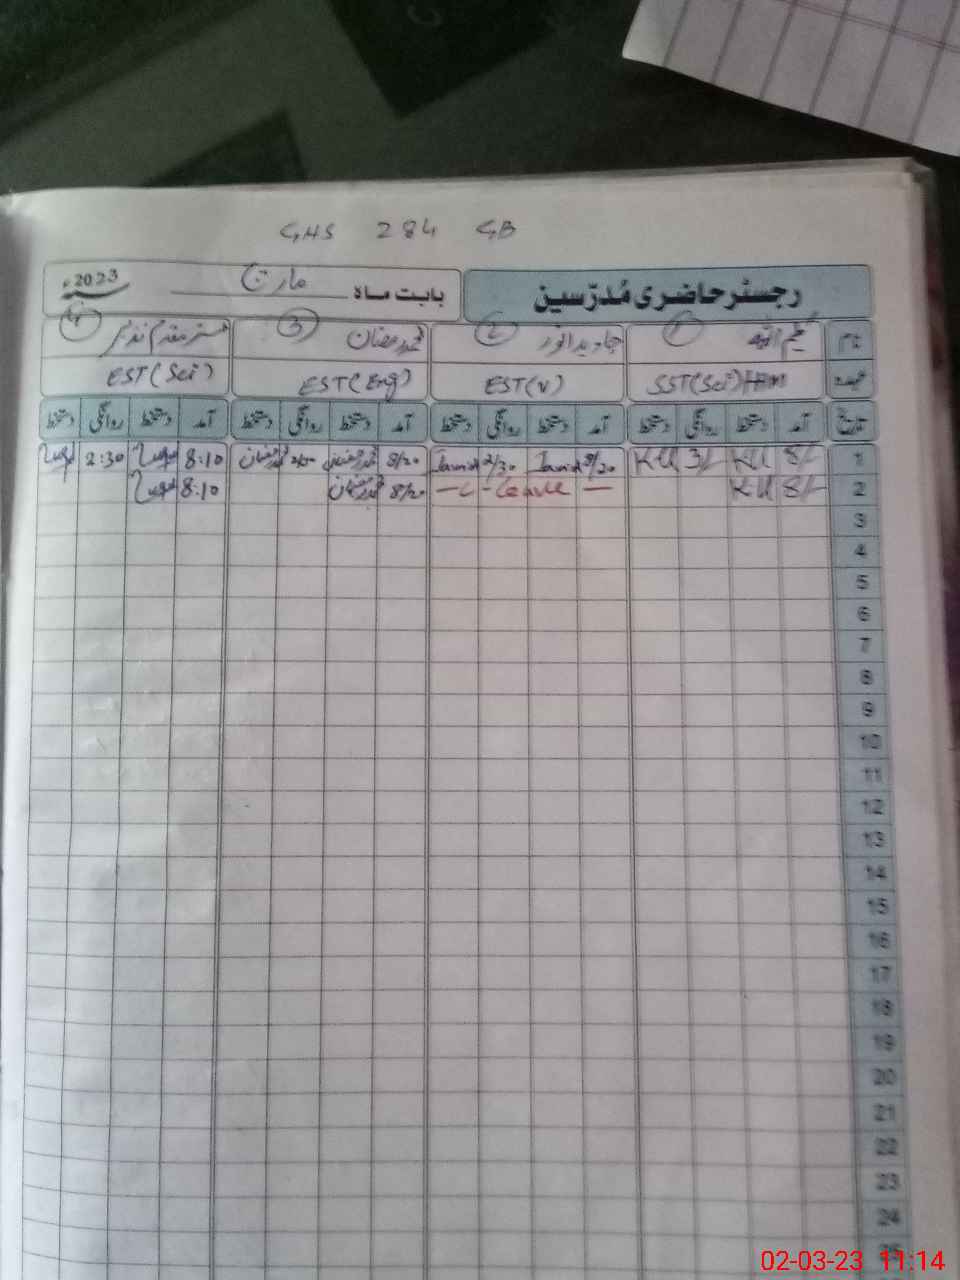 GHS 284 GB
رجسٹر حاضری مُدرّسین
بابت ماہ مارچ 2023ء
نام ① کلیم اللہ ② جاوید انور ③ محمد رمضان ④
عہدہ SST(Sci) EST(V) EST(Eng) EST(Sci)
تاریخ آمد دستخط روانگی دستخط آمد دستخط روانگی دستخط آمد دستخط روانگی دستخط آمد دستخط روانگی دستخط
1 8/- KU 3/- KU 8/20 Javid 2/30 Javid 8/20 محمد رمضان محمد رمضان 8:10 2:30
2 8/- KU — Leave — 8/20 محمد رمضان 8:10
3
4
5
6
7
8
9
10
11
12
13
14
15
16
17
18
19
20
21
22
23
24
25
02-03-23 11:14